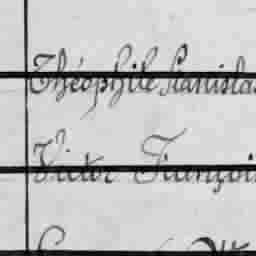 Théophile Stanislas
Victor François